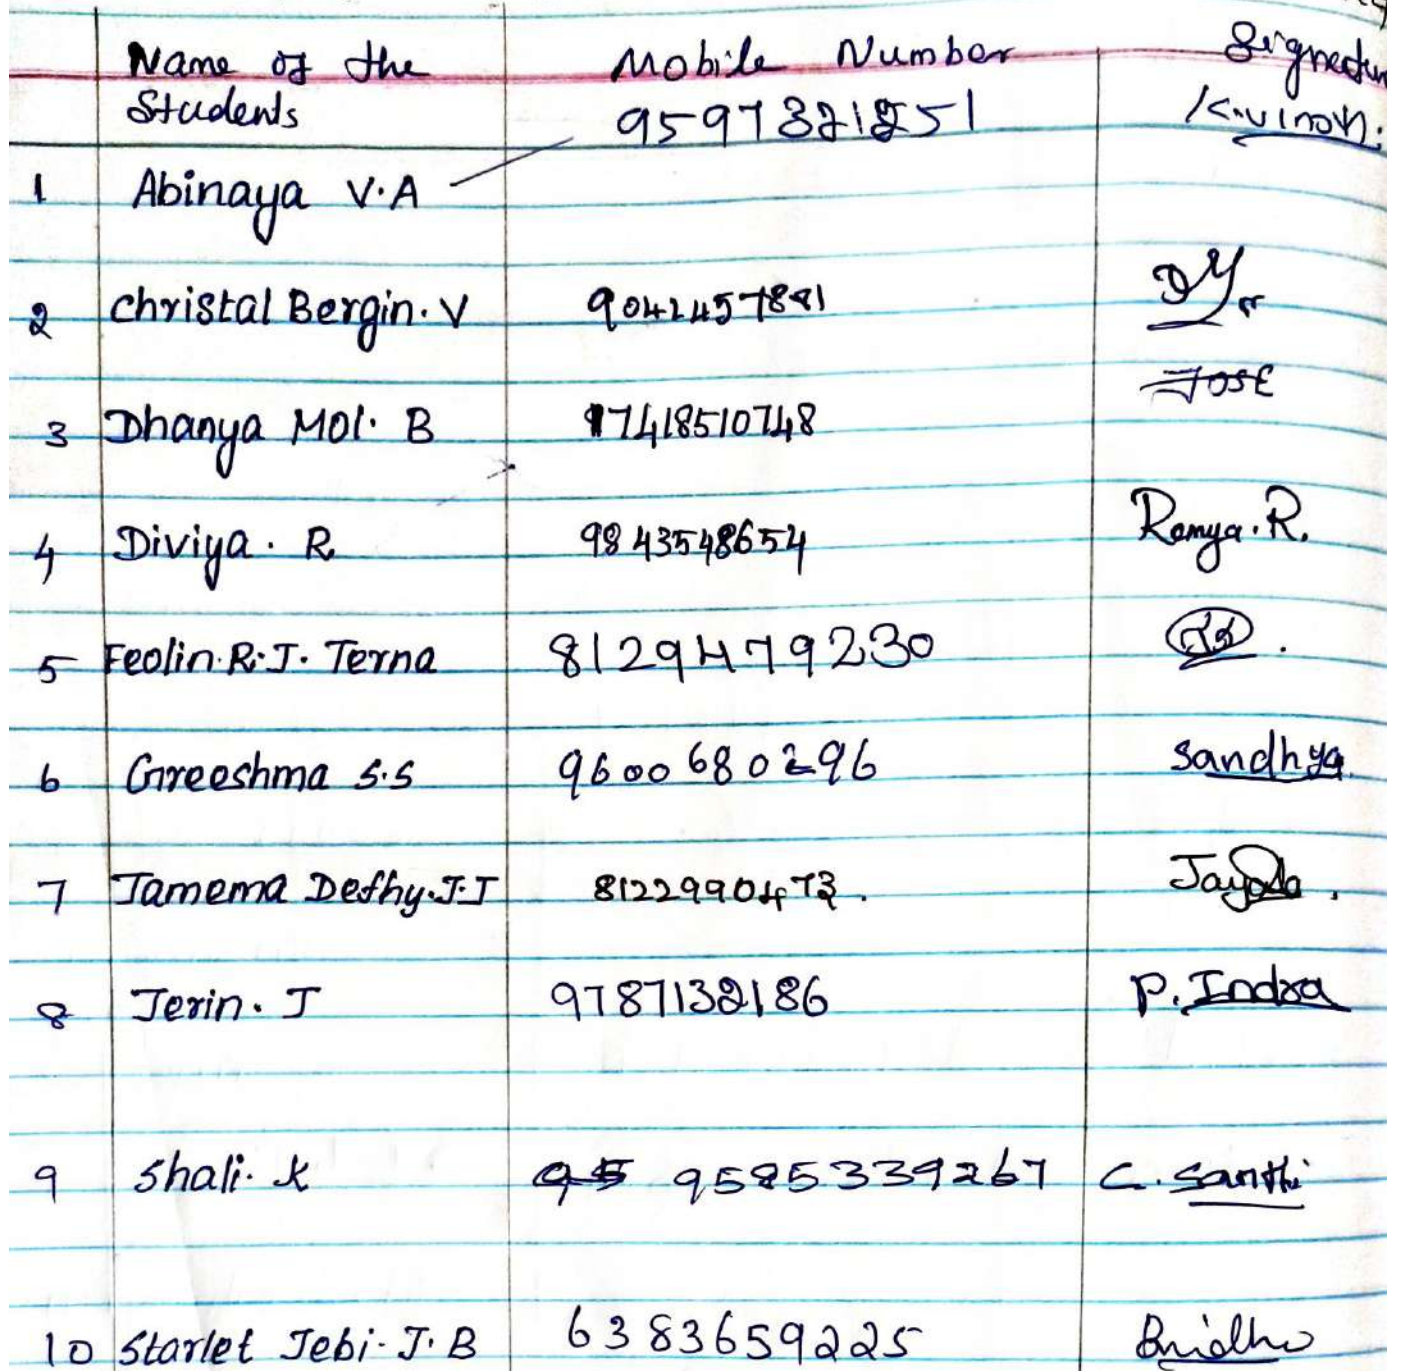 Name of the Mobile Number Signature
Students 9597321251 K.Vinoth.
1 Abinaya V.A
2 Christal Bergin. V 9042457881
3 Dhanya Mol. B 7418510748 JOSE
4 Diviya. R 9843548654 Ramya. R.
5 Feolin. R. J. Terna 8129479230
6 Greeshma S.S 9600680296 Sandhya
7 Jamema Defhy. J. J 8122990473.
8 Jerin. J 9787132186 P. Indra
9 Shali. K 95 9585339267 C. Santhi
10 Starlet Jebi. J. B 6383659225